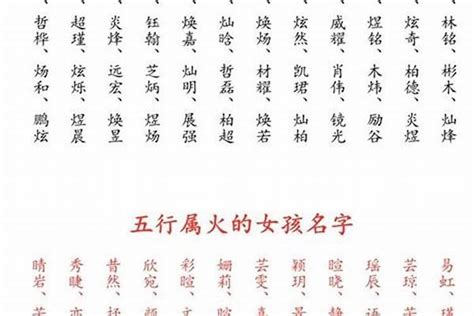 、哲桦、炀和、鹏炫
、超瑾、炫烁、煜晨
、炎烽、远宏、焕昱
、钰翰、芝炳、煜炀
、焕嘉、灿明、展强
、灿晗、哲磊、柏超
、焕炀、材耀、焕若
、炫然、凯珺、灿柏
、威耀、肖伟、镜光
、煜铭、木炜、励谷
、炫奇、柏德、炎煜
、林铭、彬木、灿烽
五行属火的女孩名字
晴岩、
秀睫、
昔然、
欣宛、
彩暄、
姗莉、
芸雯、
颖玥、
暄晓、
瑶辰、
芸琼、
易虹、